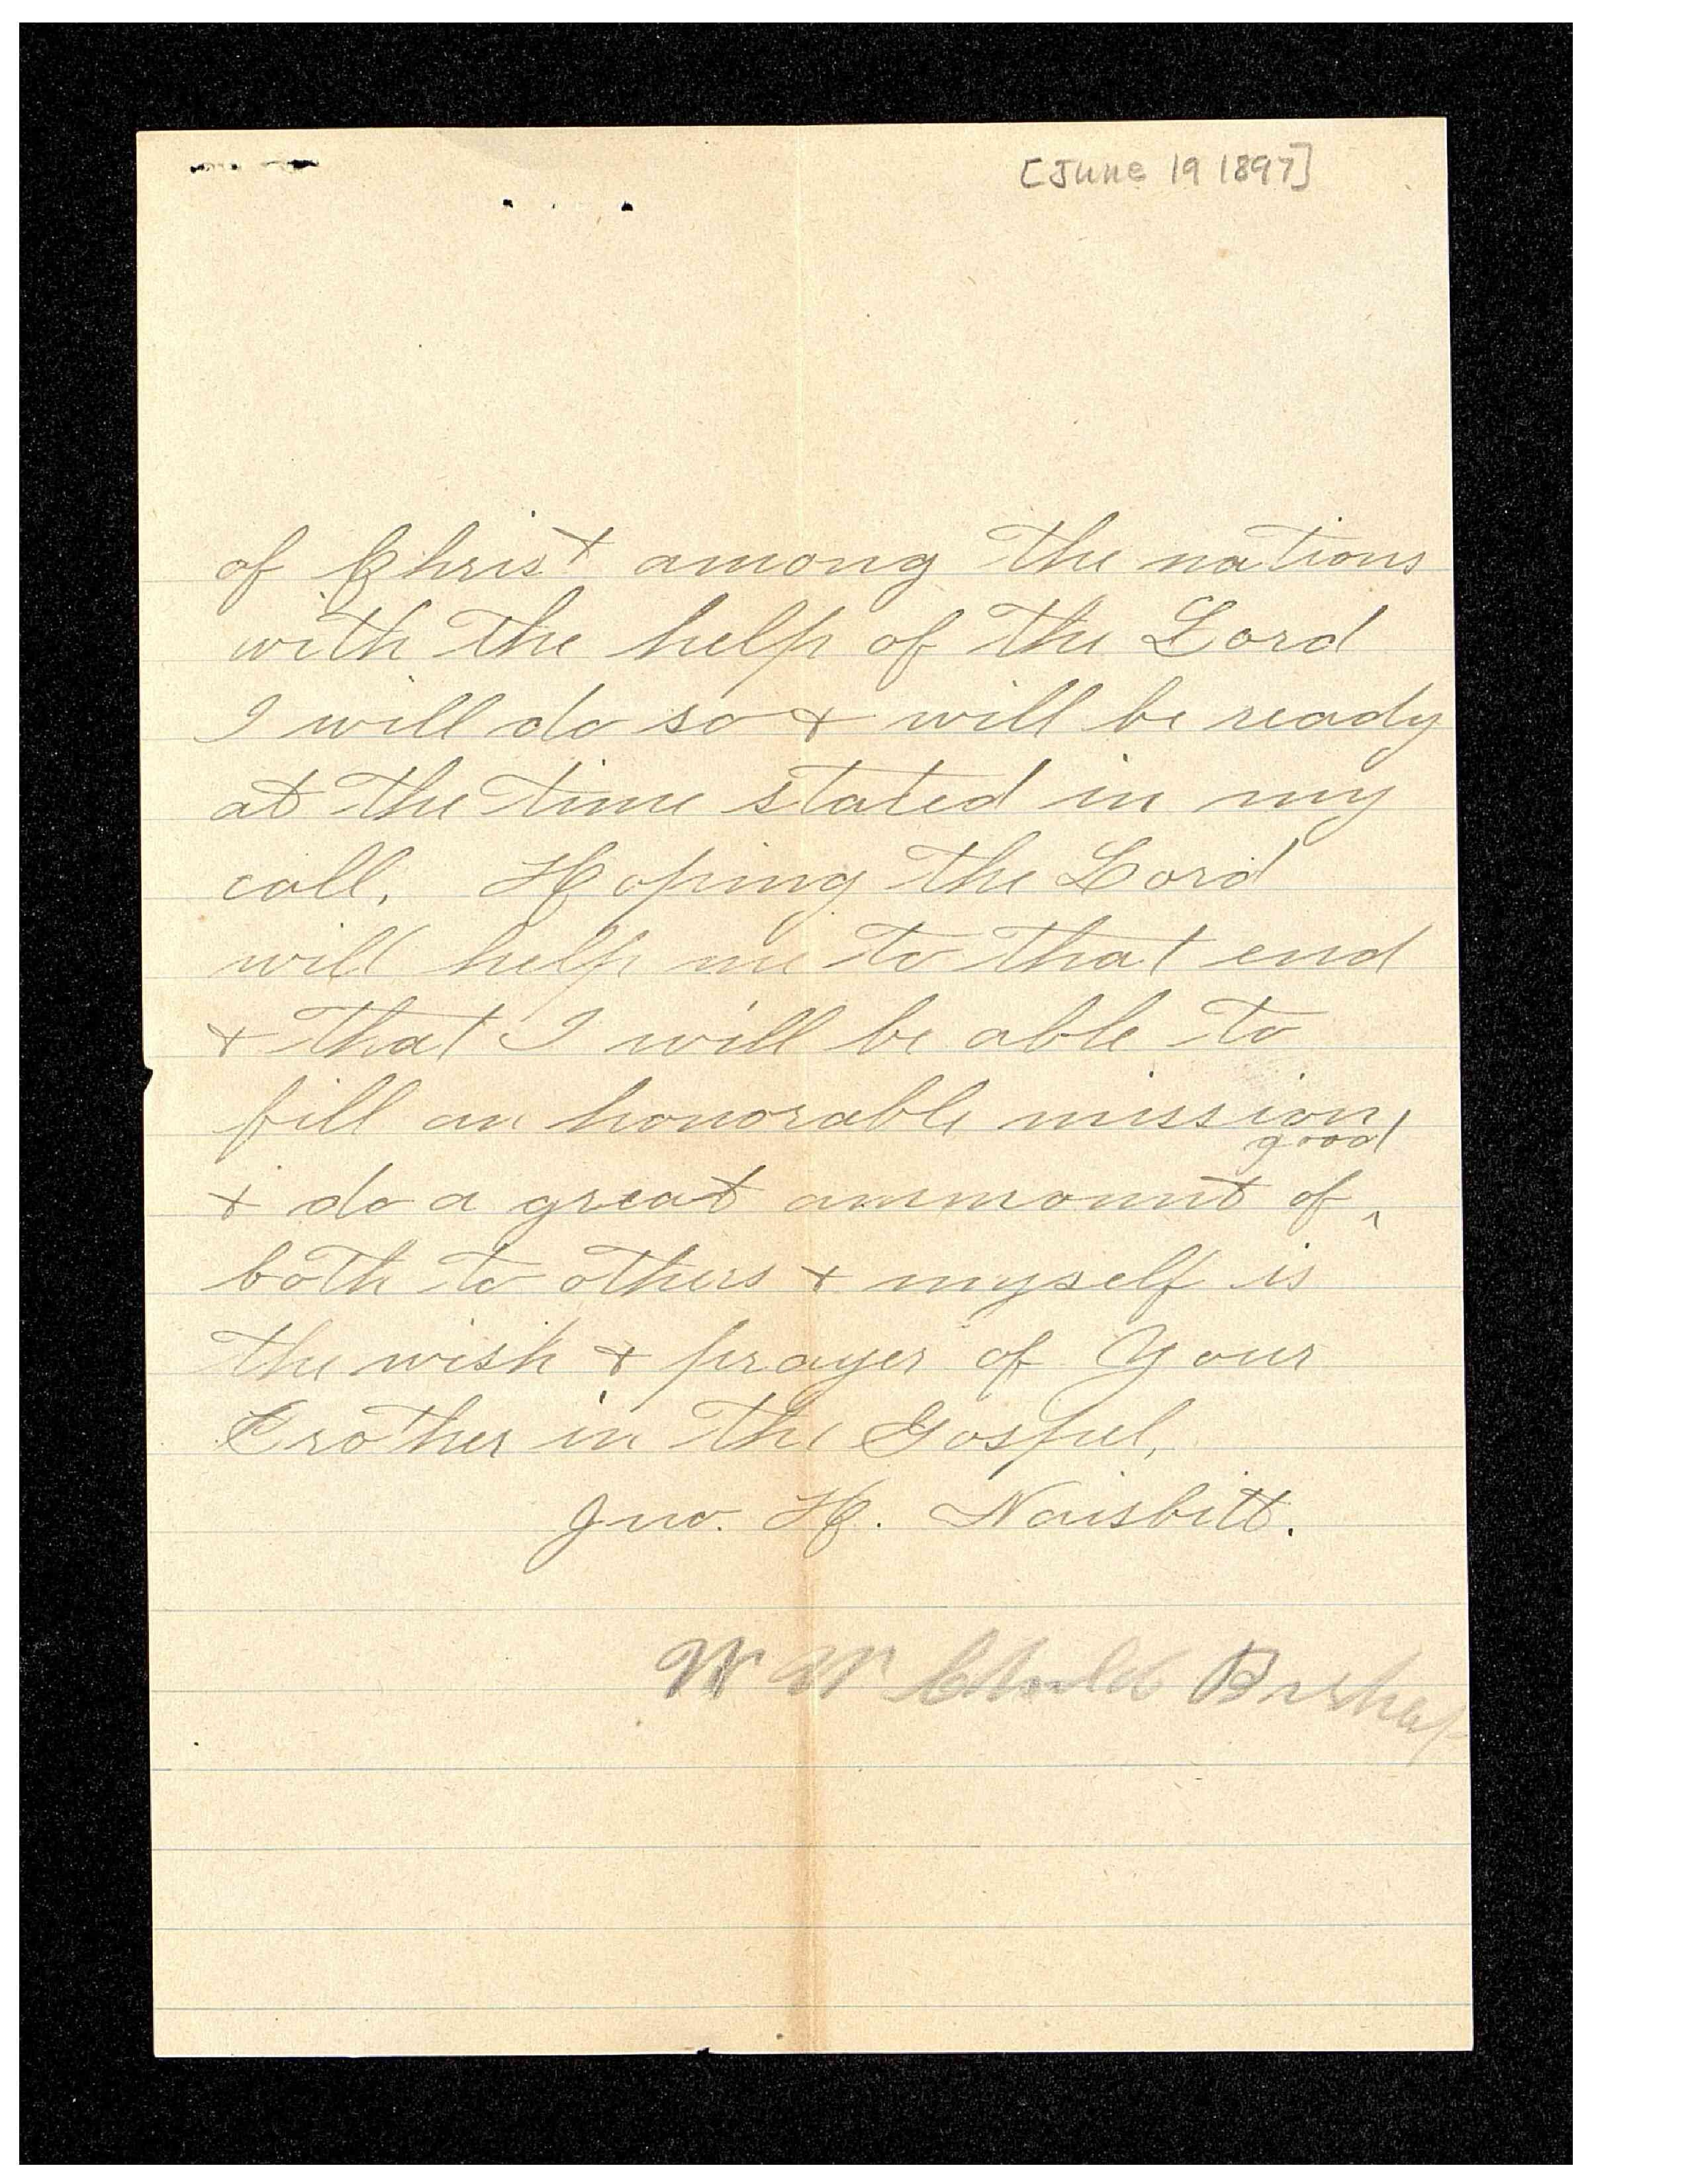 [June 19 1897]
of Christ among the nations
with the help of the Lord
I will do so & will be ready
at the time stated in my
call. Hoping the Lord
will help me to that end
& that I will be able to
fill an honorable mission,
good
& do a great ammount of ^
both to others & myself is
the wish & prayer of Your
Brother in the Gospel,
Jno. H. Naisbitt.
W W Bishop